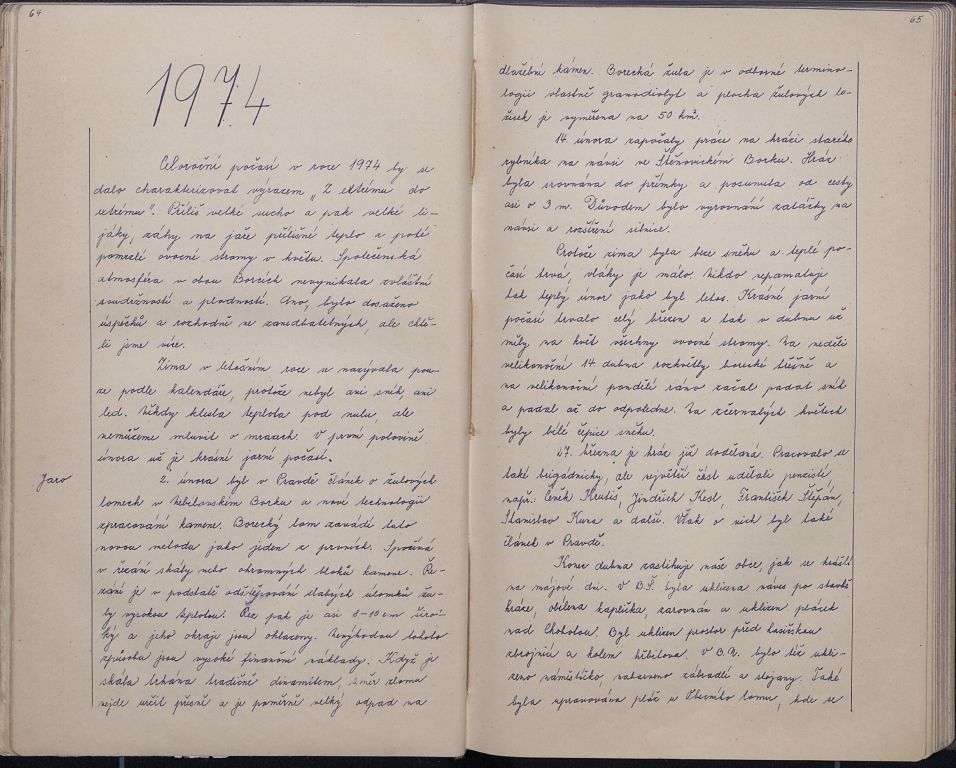 64
1974
Celoroční počasí v roce 1974 by se
dalo charakterizovat výrazem „Z extrému do
extrému". Příliš velké sucho a pak velké li-
jáky, záhy na jaře přílišné teplo a poté
pomrzlé ovocné stromy v květu. Společenská
atmosféra v obou Borcích nevynikala zvláštní
soudržností a plodností. Ano, bylo dosaženo
úspěchů a rozhodně ne zanedbatelných, ale chtě-
li jsme více.
Zima v letošním roce se nazývala pou-
ze podle kalendáře, protože nebyl ani sníh, ani
led. Nikdy klesla teplota pod nulu, ale
nemůžeme mluvit o mrazech. V první polovině
února už je krásné jarní počasí.
Jaro
2. února byl v Pravdě článek o žulových
lomech v Nebílovském Borku a nové technologii
zpracování kamene. Borecký lom zavádí tuto
novou metodu jako jeden z prvních. Spočívá
v řezání skály nebo ohromných bloků kamene. Ře-
zání je v podstatě odštěpování slabých úlomků žu-
ly vysokou teplotou. Řez pak je asi 8-10 cm širo-
ký a jeho okraje jsou ohlazeny. Nevýhodou tohoto
způsobu jsou vysoké finanční náklady. Když je
skála trhána tradičně dinamitem, směr zlomu
nejde určit přesně a je poměrně velký odpad na
65
dlažební kámen. Borecká žula je v odborné termino-
logii vlastně granodiobyt a plocha žulových lo-
žisek je vyměřena na 50 km².
14. února započaty práce na hrázi starého
rybníka na návsi ve Štěnovickém Borku. Hráz
byla srovnána do přímky a posunuta od cesty
asi o 3 m. Důvodem bylo vyrovnání zatáčky na
návsi a rozšíření silnice.
Protože zima byla beze sněhu a teplé po-
časí trvá, vláhy je málo. Nikdo nepamatuje
tak teplý únor jako byl letos. Krásné jarní
počasí trvalo celý březen a tak v dubnu už
měly na květ všechny ovocné stromy. Na neděli
velikonoční 14. dubna rozkvétly borecké třešně a
na velikonoční pondělí ráno začal padat sníh
a padal až do odpoledne. Na zčernalých květech
byly bílé čepice sněhu.
27. března je hráz již dodělaná. Pracovalo se
také brigádnicky, ale největší část udělali penzisté
např.: Čeněk Krutiš, Jindřich Kesl, František Štěpán,
Stanislav Kuna a další. Však o nich byl také
článek v Pravdě.
Konec dubna zastihuje naše obce, jak se krášlí
na májové dni. V B.Š. byla uklizena náves po stavbě
hráze, obílena kaplička, zarovnán a uklizen plácek
nad Chobotou. Byl uklizen prostor před hasičskou
zbrojnicí a kolem hřbitova. V B.N. bylo též ukli-
zeno náměstíčko natřeno zábradlí a stojany. Také
byla upravována pláž u Zborního lomu, kde se